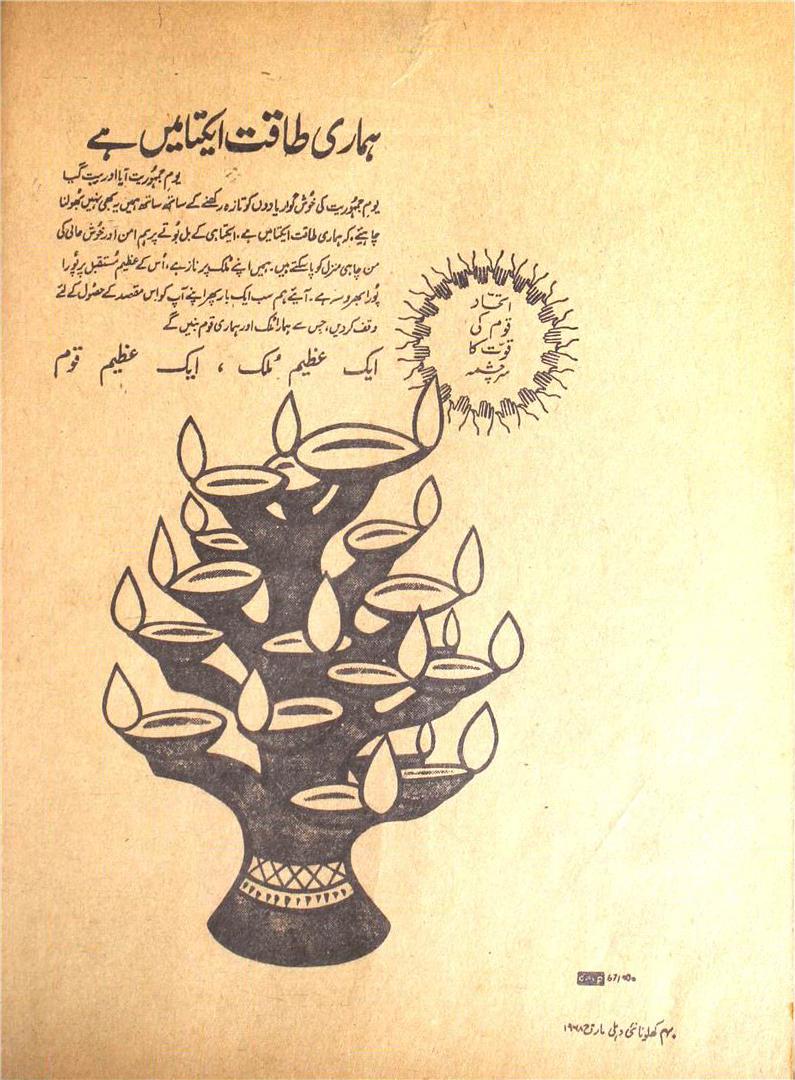 ہماری طاقت ایکتا میں ہے
یوم جمہوریت آیا اور بیت گیا
یوم جمہوریت کی خوش گوار یادوں کو تازہ رکھنے کے ساتھ ساتھ ہمیں یہ بھی نہیں بھولنا
چاہیئے کہ ہماری طاقت ایکتا میں ہے، ایکتا ہی کے بل بُوتے پر ہم امن اور خُوش حالی کی
من چاہی منزل کو پا سکتے ہیں۔ ہمیں اپنے مُلک پر ناز ہے، اُس کے عظیم مُستقبل پر پُورا
پُورا بھروسہ ہے۔ آیئے ہم سب ایک بار پھر اپنے آپ کو اس مقصد کے حصُول کے لئے
وقف کر دیں، جس سے ہمارا مُلک اور ہماری قوم بنیں گے
ایک عظیم مُلک ، ایک عظیم قوم
اتحاد
قوم کی
قوّت کا
سرچشمہ
davp 67/
کھلونا نئی دہلی مارچ ۱۹۶۸